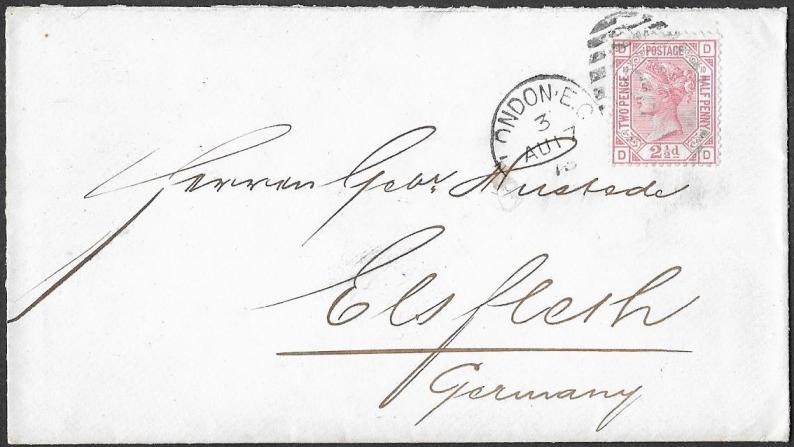 D POSTAGE D
TWO PENCE HALF PENNY
D 2½d D
LONDON·E.C
3
AU 17
Herren Gebr. Rustede
Elsfleth
Germany